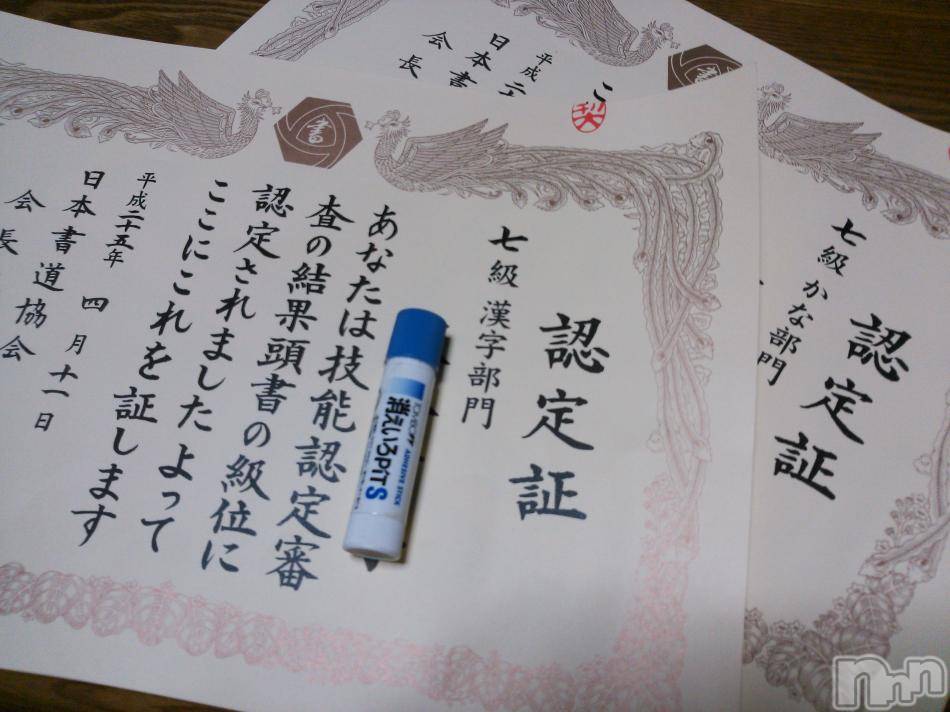 認定証
七級 漢字部門
あなたは技能認定審
査の結果頭書の級位に
認定されましたよって
ここにこれを証します
平成二十五年 四月十一日
日本書道協会
会長
書
消えいろPiT S
ADHESIVE STICK
認定証
七級 かな部門
こ
平成二
日本書
会長
書
nnn